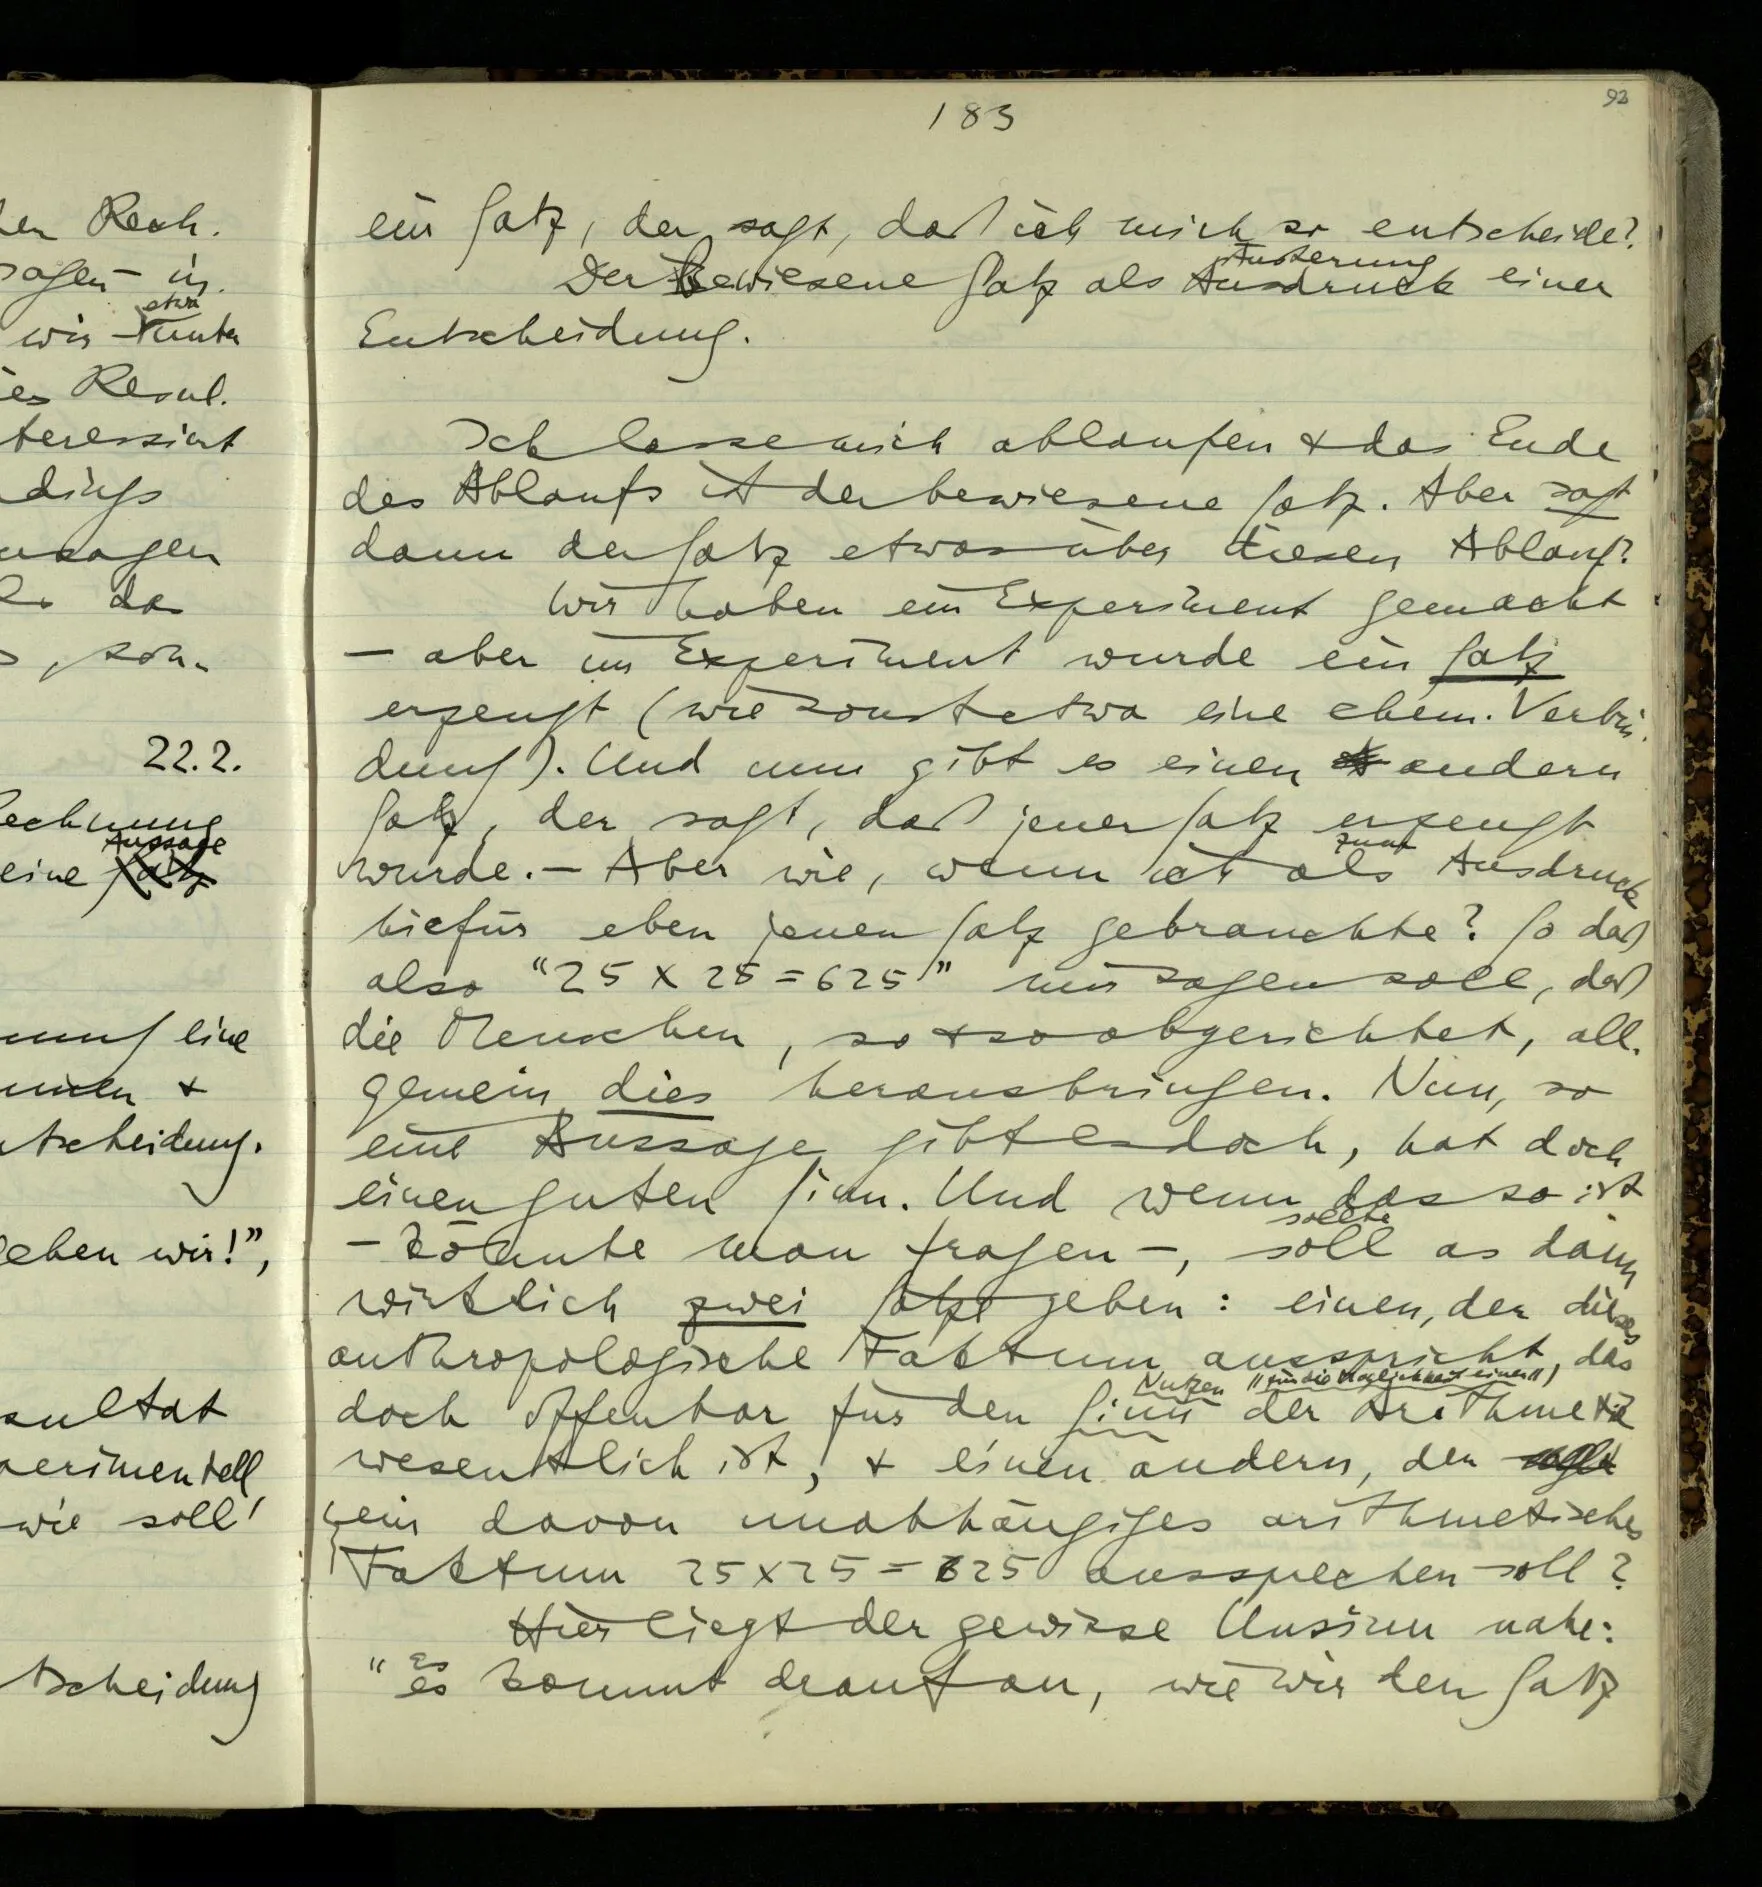 den Rech.
sagen – in
etwa
wir unter
Resul.
teressiert
dings
aussagen
das
, son-
22.2.
Rechnung
Aussage
eine Satz
ung eine
+
ntscheidung.
geben wir!”,
sultat
perimentell
wie soll
tscheidung
93
183
ein Satz, der sagt, daß ich mich so entscheide?
Äußerung
Der Bewiesene Satz als Ausdruck einer
Entscheidung.
Ich lasse mich ablaufen + das Ende
des Ablaufs ist der bewiesene Satz. Aber sagt
dann der Satz etwas über diesen Ablauf?
Wir haben ein Experiment gemacht
– aber im Experiment wurde ein Satz
erzeugt (wie sonst etwa eine chem. Verbin-
dung). Und nun gibt es einen andern
Satz, der sagt, daß jener Satz erzeugt
zum
wurde. – Aber wie, wenn ich als Ausdruck
hiefür eben jenen Satz gebrauchte? So daß
also “25 × 25 = 625” nun sagen soll, daß
die Menschen, so + so abgerichtet, all-
gemein dies herausbringen. Nun, so
eine Aussage gibt es doch, hat doch
einen guten Sinn. Und wenn das so ist
sollte
– könnte man fragen –, soll es dann
wirklich zwei Sätze geben: einen, der dieses
anthropologische Faktum ausspricht, das
Nutzen “für die Möglichkeit einer”)
doch offenbar für den Sinn der Arithmetik
wesentlich ist, + einen andern, der
ein davon unabhängiges arithmetisches
Faktum 25 × 25 = 625 aussprechen soll?
Hier liegt der gewisse Unsinn nahe:
Es
“es kommt drauf an, wie wir den Satz